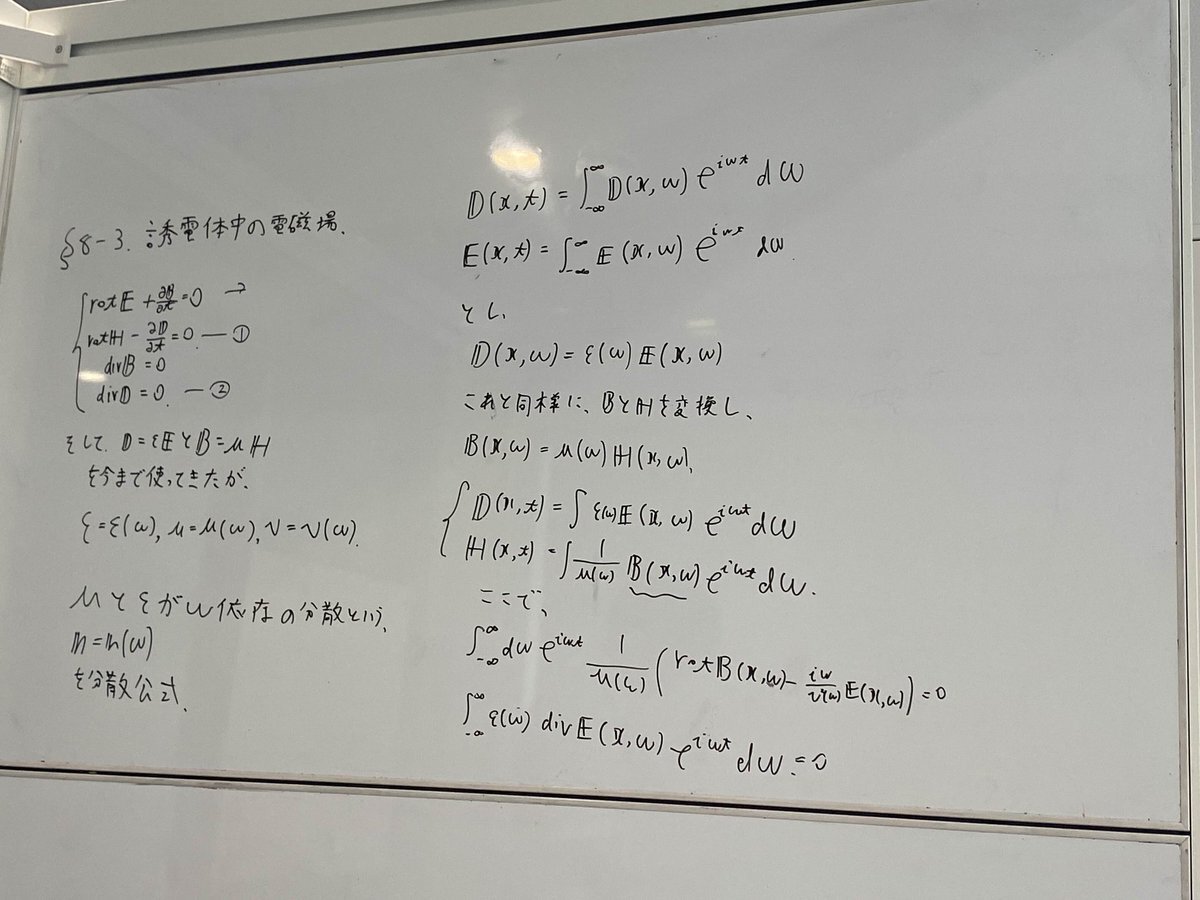 §8-3. 誘電体中の電磁場.
rot𝔼 + ∂𝔹/∂t = 0 →
rotℍ - ∂𝔻/∂t = 0. — ①
div𝔹 = 0
div𝔻 = 0. — ②
そして. 𝔻 = ε𝔼と𝔹 = μℍ
を今まで使ってきたが、
ε = ε(ω), μ = μ(ω), v = v(ω).
μとεがω依存の分散という.
𝕟 = 𝕟(ω)
を分散公式.
𝔻(x,t) = ∫_{-∞}^{∞} 𝔻(x,ω) e^{iωt} dω
𝔼(x,t) = ∫_{-∞}^{∞} 𝔼(x,ω) e^{iωt} dω.
とし、
𝔻(x,ω) = ε(ω) 𝔼(x,ω)
これと同様に、𝔹とℍを変換し、
𝔹(x,ω) = μ(ω) ℍ(x,ω).
𝔻(x,t) = ∫ ε(ω) 𝔼(x,ω) e^{iωt} dω
ℍ(x,t) = ∫ 1/μ(ω) 𝔹(x,ω) e^{iωt} dω.
ここで、
∫_{-∞}^{∞} dω e^{iωt} 1/μ(ω) (rot𝔹(x,ω) - iω/v²(ω) 𝔼(x,ω)) = 0
∫_{-∞}^{∞} ε(ω) div𝔼(x,ω) e^{iωt} dω = 0